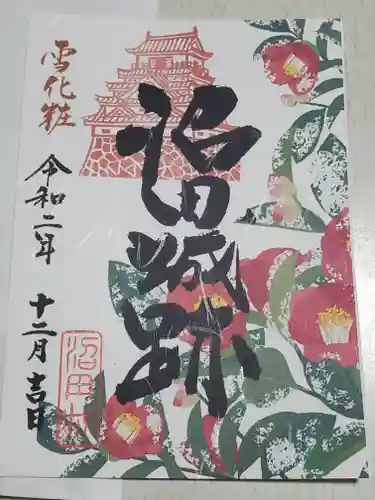 沼田城跡
雪化粧
令和二年 十二月 吉日